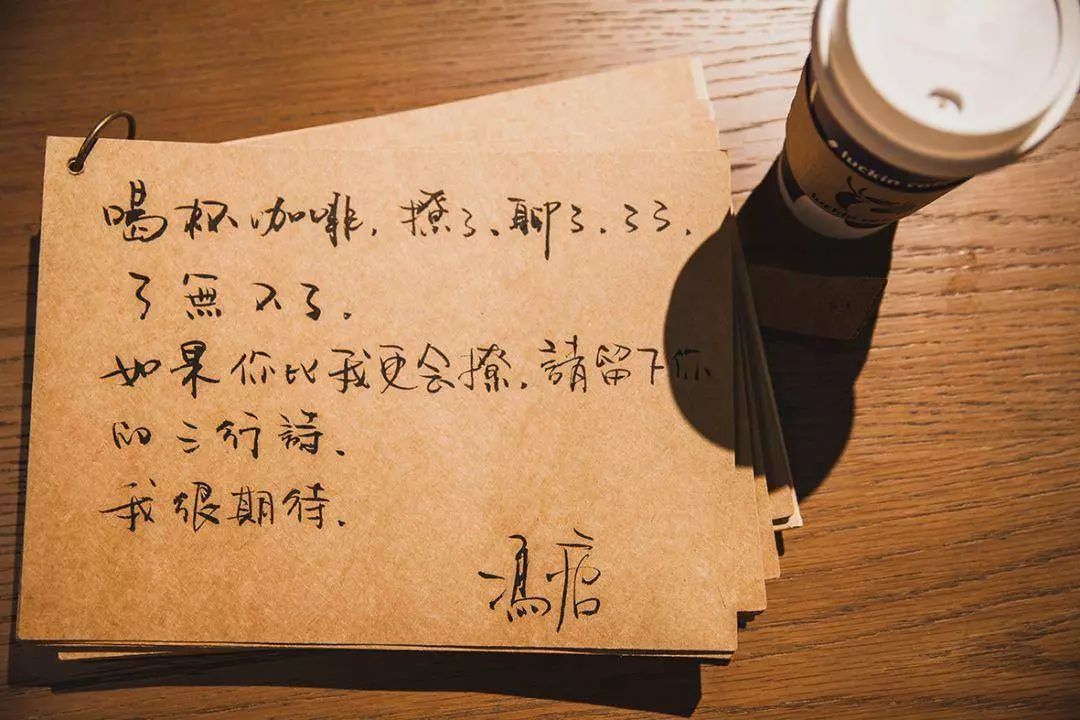 喝杯咖啡，撩了、聊了、了了，
了無不了。
如果你比我更会撩，請留下你
的三行詩、
我很期待、
馮唐
luckin co